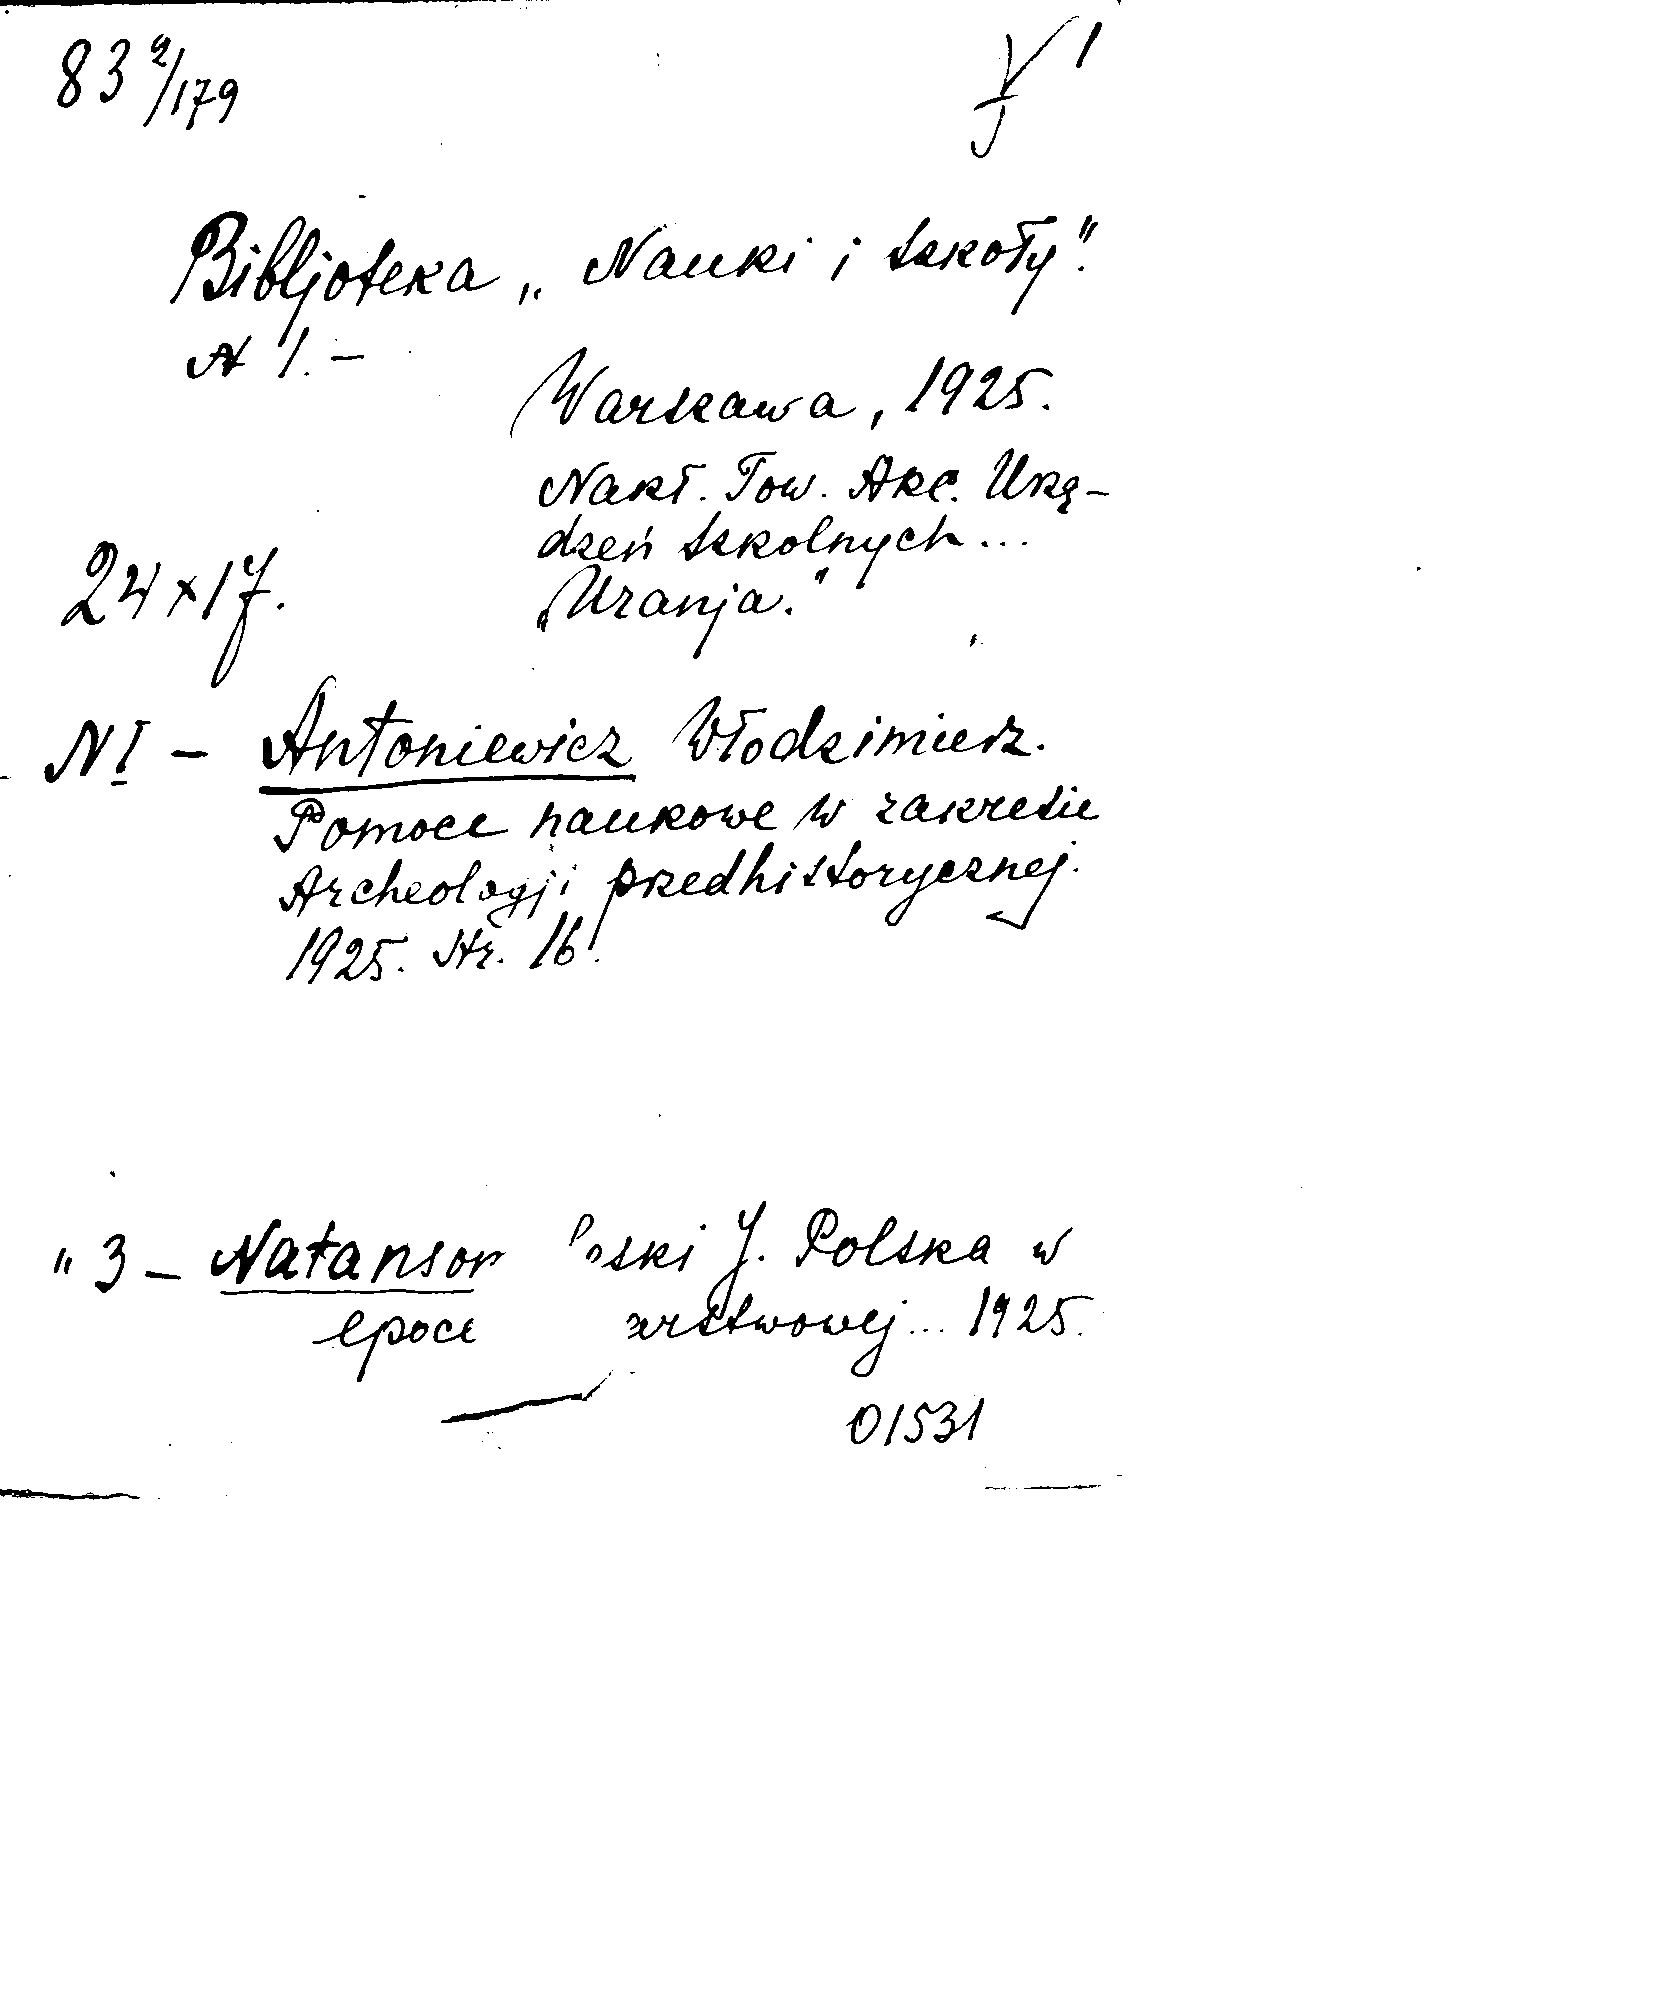 83 9/179
V 1
J
Bibljoteka „Nauki i szkoły".
N 1. –
Warszawa, 1925.
Nakł. Tow. Akc. Urzą-
dzeń szkolnych...
24 x 17.
„Uranja."
N I – Antoniewicz Włodzimierz.
Pomoce naukowe w zakresie
Archeologji przedhistorycznej.
1925. Str. 16.
" 3 – Natanson ski J. Polska w
epoce arstwowej... 1925.
01531